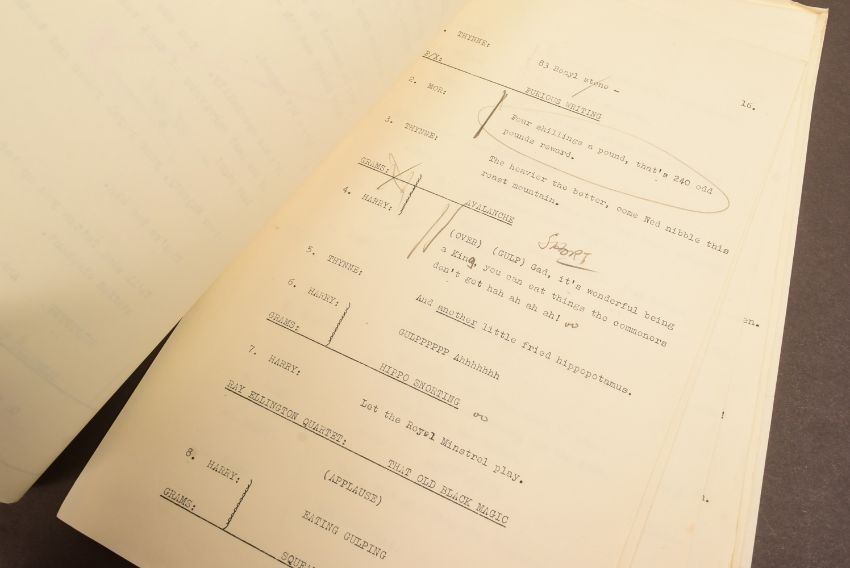 16.
THYNNE:
83 Royl stone -
F/X:
FURIOUS WRITING
2. MOR:
Four shillings a pound, that's 240 odd
pounds reward.
3. THYNNE:
The heavier the better, come Ned nibble this
roast mountain.
GRAMS:
AVALANCHE
4. HARRY:
SHORT
(OVER) (GULP) Gad, it's wonderful being
a King, you can eat things the commoners
don't get hah ah ah ah!
5. THYNNE:
And another little fried hippopotamus.
6. HARRY:
GULPPPPPP Ahhhhhhh
GRAMS:
HIPPO SNORTING
7. HARRY:
Let the Royal Minstrel play.
RAY ELLINGTON QUARTET:
THAT OLD BLACK MAGIC
(APPLAUSE)
8. HARRY:
EATING GULPING
GRAMS:
en.
!